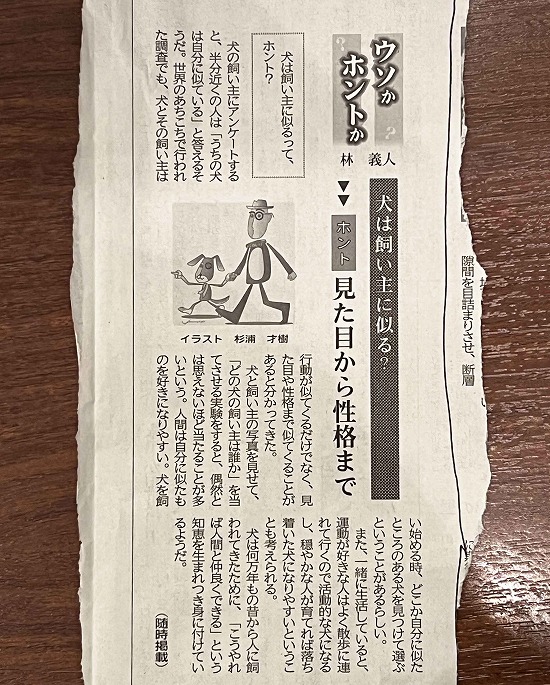 ウソか
ホントか
?
?
林 義人
犬は飼い主に似る?
ホント
見た目から性格まで
犬は飼い主に似るって、
ホント?
犬の飼い主にアンケートする
と、半分近くの人は「うちの犬
は自分に似ている」と答えるそ
うだ。世界のあちこちで行われ
た調査でも、犬とその飼い主は
イラスト 杉浦 才樹
行動が似てくるだけでなく、見
た目や性格まで似てくることが
あると分かってきた。
犬と飼い主の写真を見せて、
「どの犬の飼い主は誰か」を当
てさせる実験をすると、偶然と
は思えないほど当たることが多
いという。人間は自分に似たも
のを好きになりやすい。犬を飼
い始める時、どこか自分に似た
ところのある犬を見つけて選ぶ
ということがあるらしい。
また、一緒に生活していると、
運動が好きな人はよく散歩に連
れて行くので活動的な犬になる
し、穏やかな人が育てれば落ち
着いた犬になりやすいというこ
とも考えられる。
犬は何万年もの昔から人に飼
われてきたために、「こうやれ
ば人間と仲良くできる」という
知恵を生まれつき身に付けてい
るようだ。
(随時掲載)
隙間を目詰まりさせ、断層